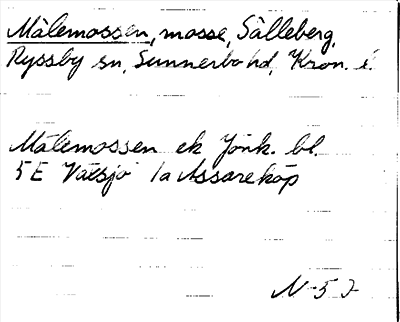 Målemossen, mosse, Sålleberg,
Ryssby sn, Sunnerbo hd, Kron. l.
Målemossen ek Jönk. bl.
5 E Växsjö 1a Assareköp
N-52